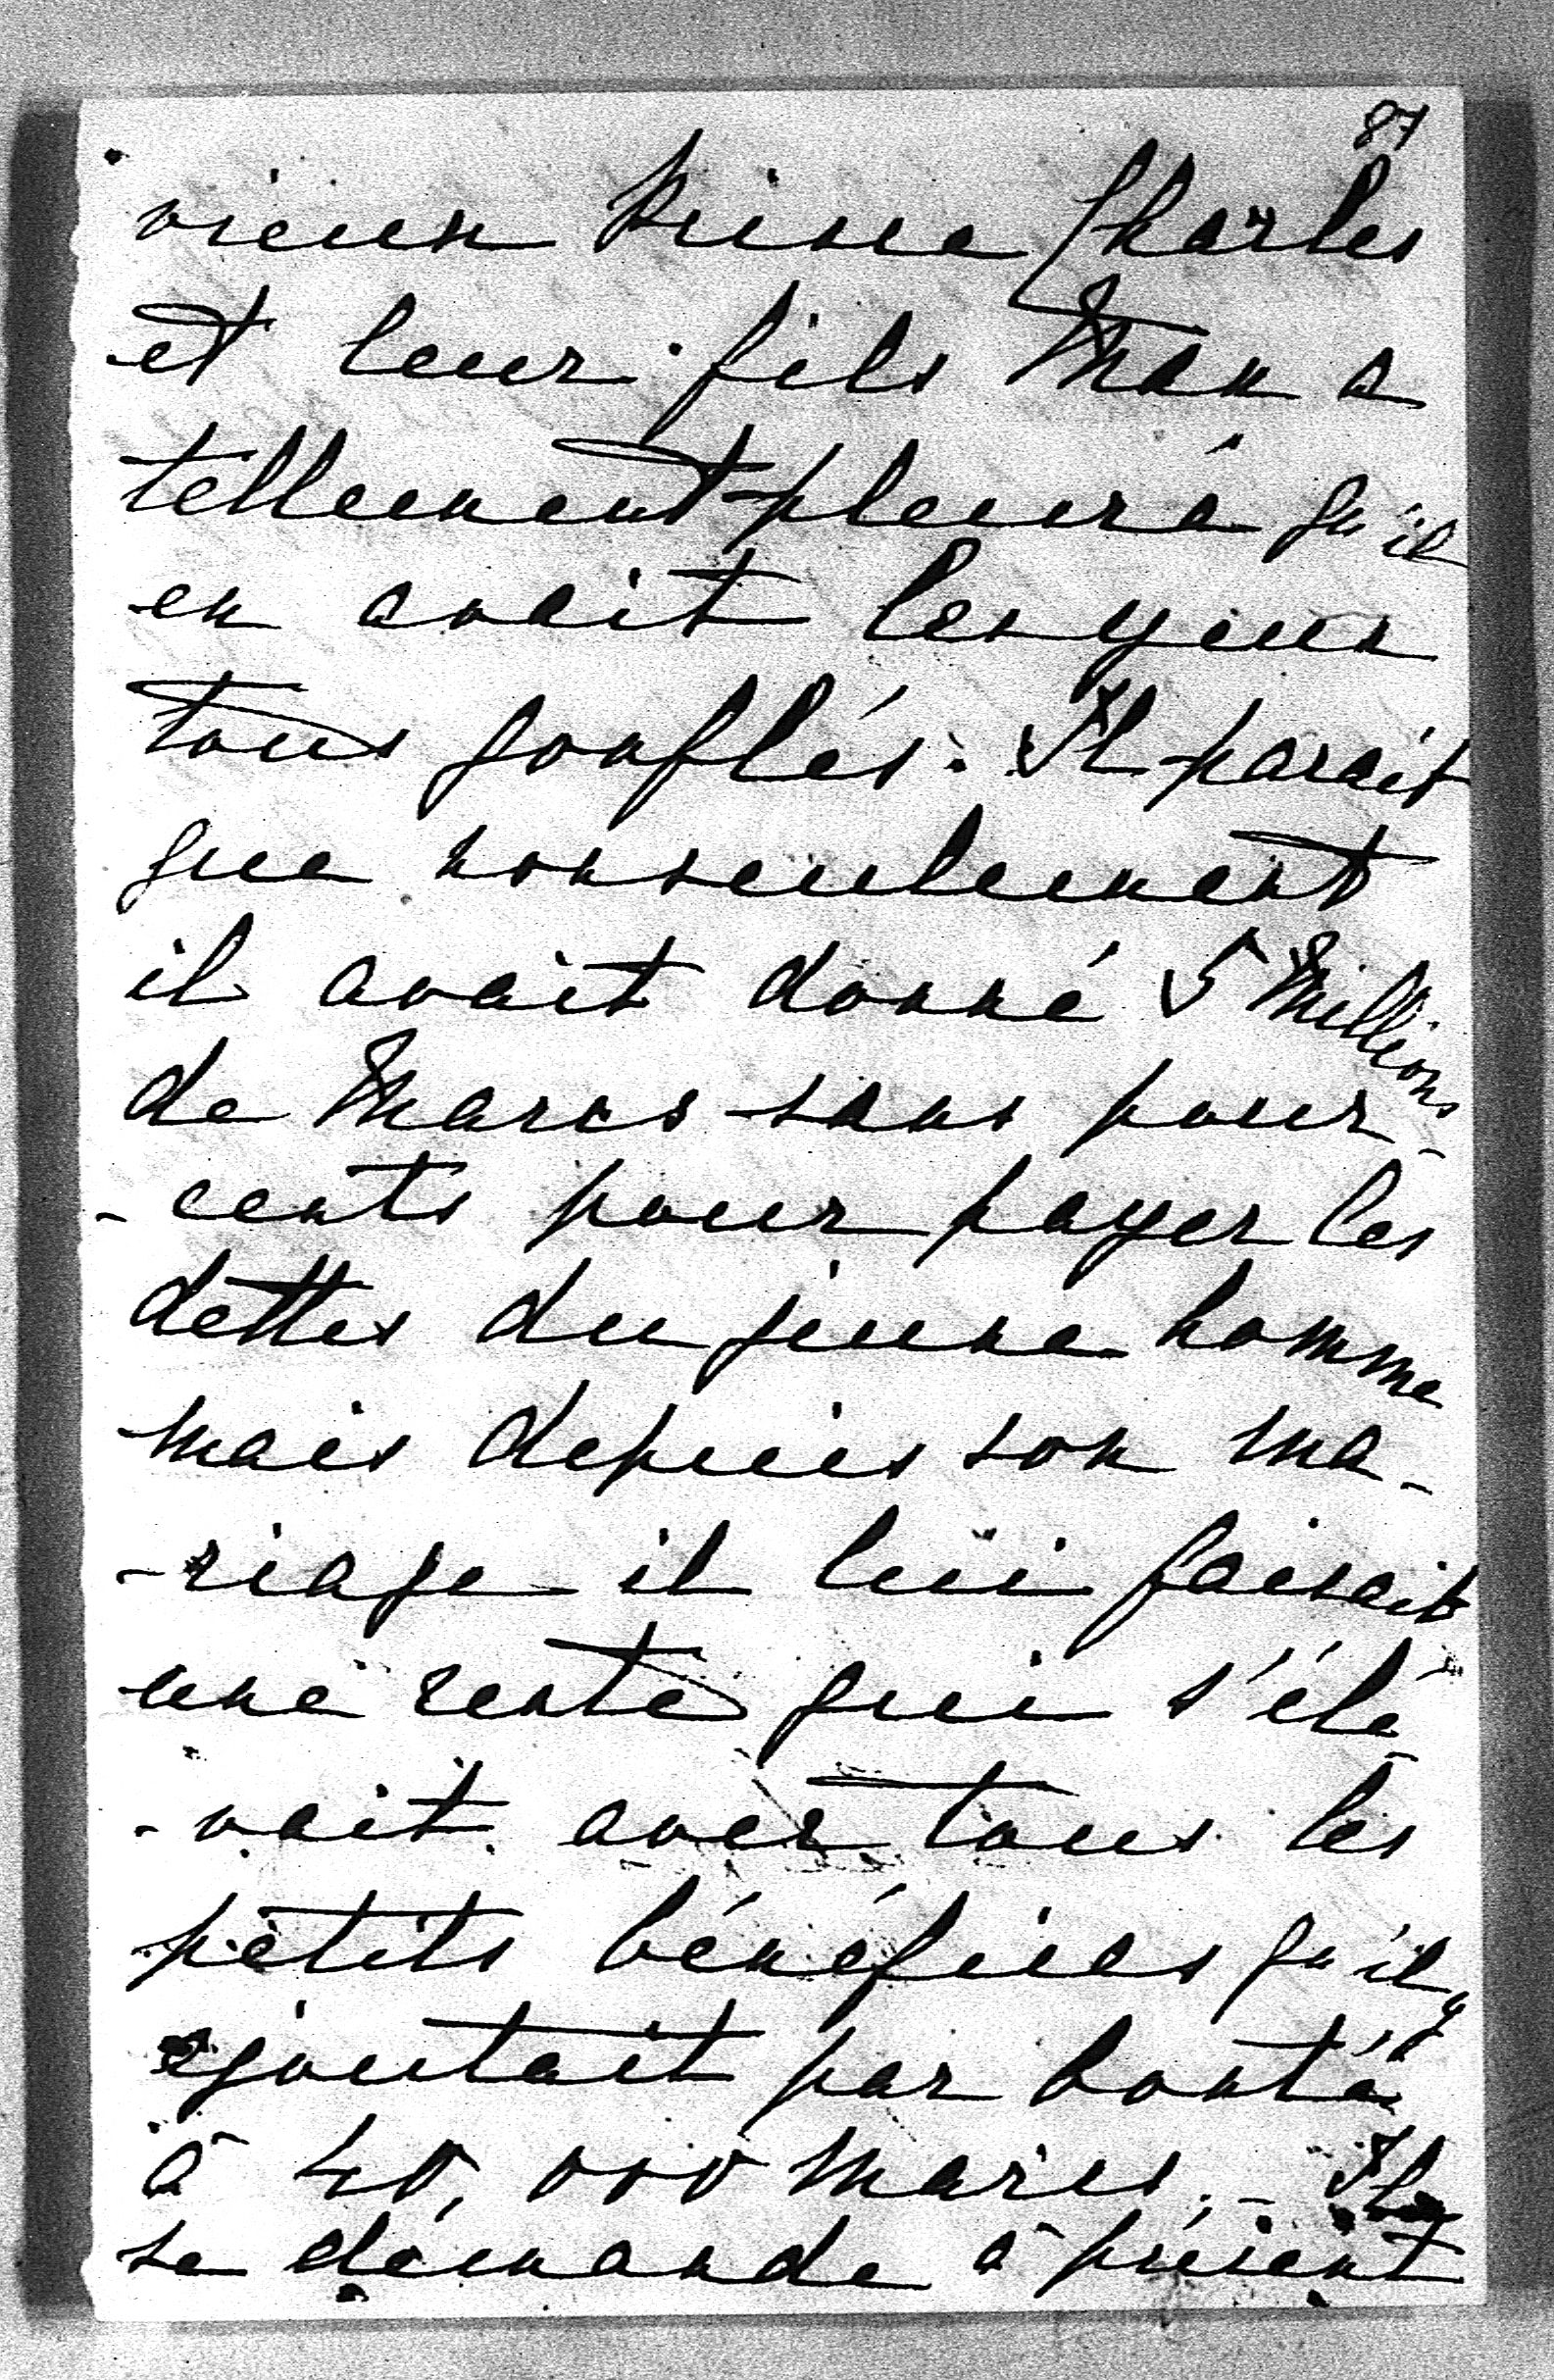 87
vieux Prince Charles
et leur fils Max a
tellement pleuré qu'il
en avait les yeux
tous gonflés. Il parait
que nonseulement
il avait donné 5 Millions
de Marcs sans pour-
-cents pour payer les
dettes du jeune homme
mais depuis son ma-
-riage il lui faisait
une rente qui s'éle-
-vait avec tous les
petits bénéfices qu'il y
ajoutait par bonté
à 40,000 Marcs. - Il
se demande à présent